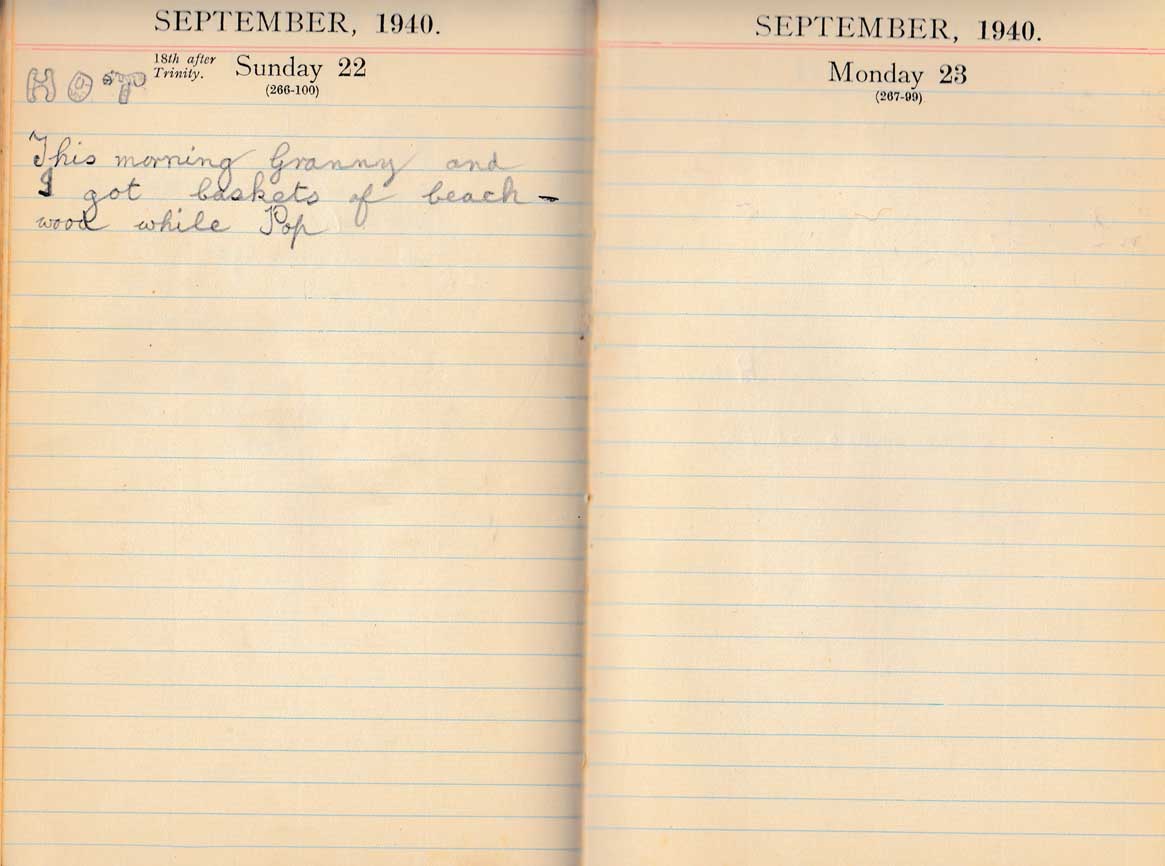 SEPTEMBER, 1940.
HOT
18th after
Trinity.
Sunday 22
(266-100)
This morning Granny and
I got baskets of beach-
wood while Pop
SEPTEMBER, 1940.
Monday 23
(267-99)